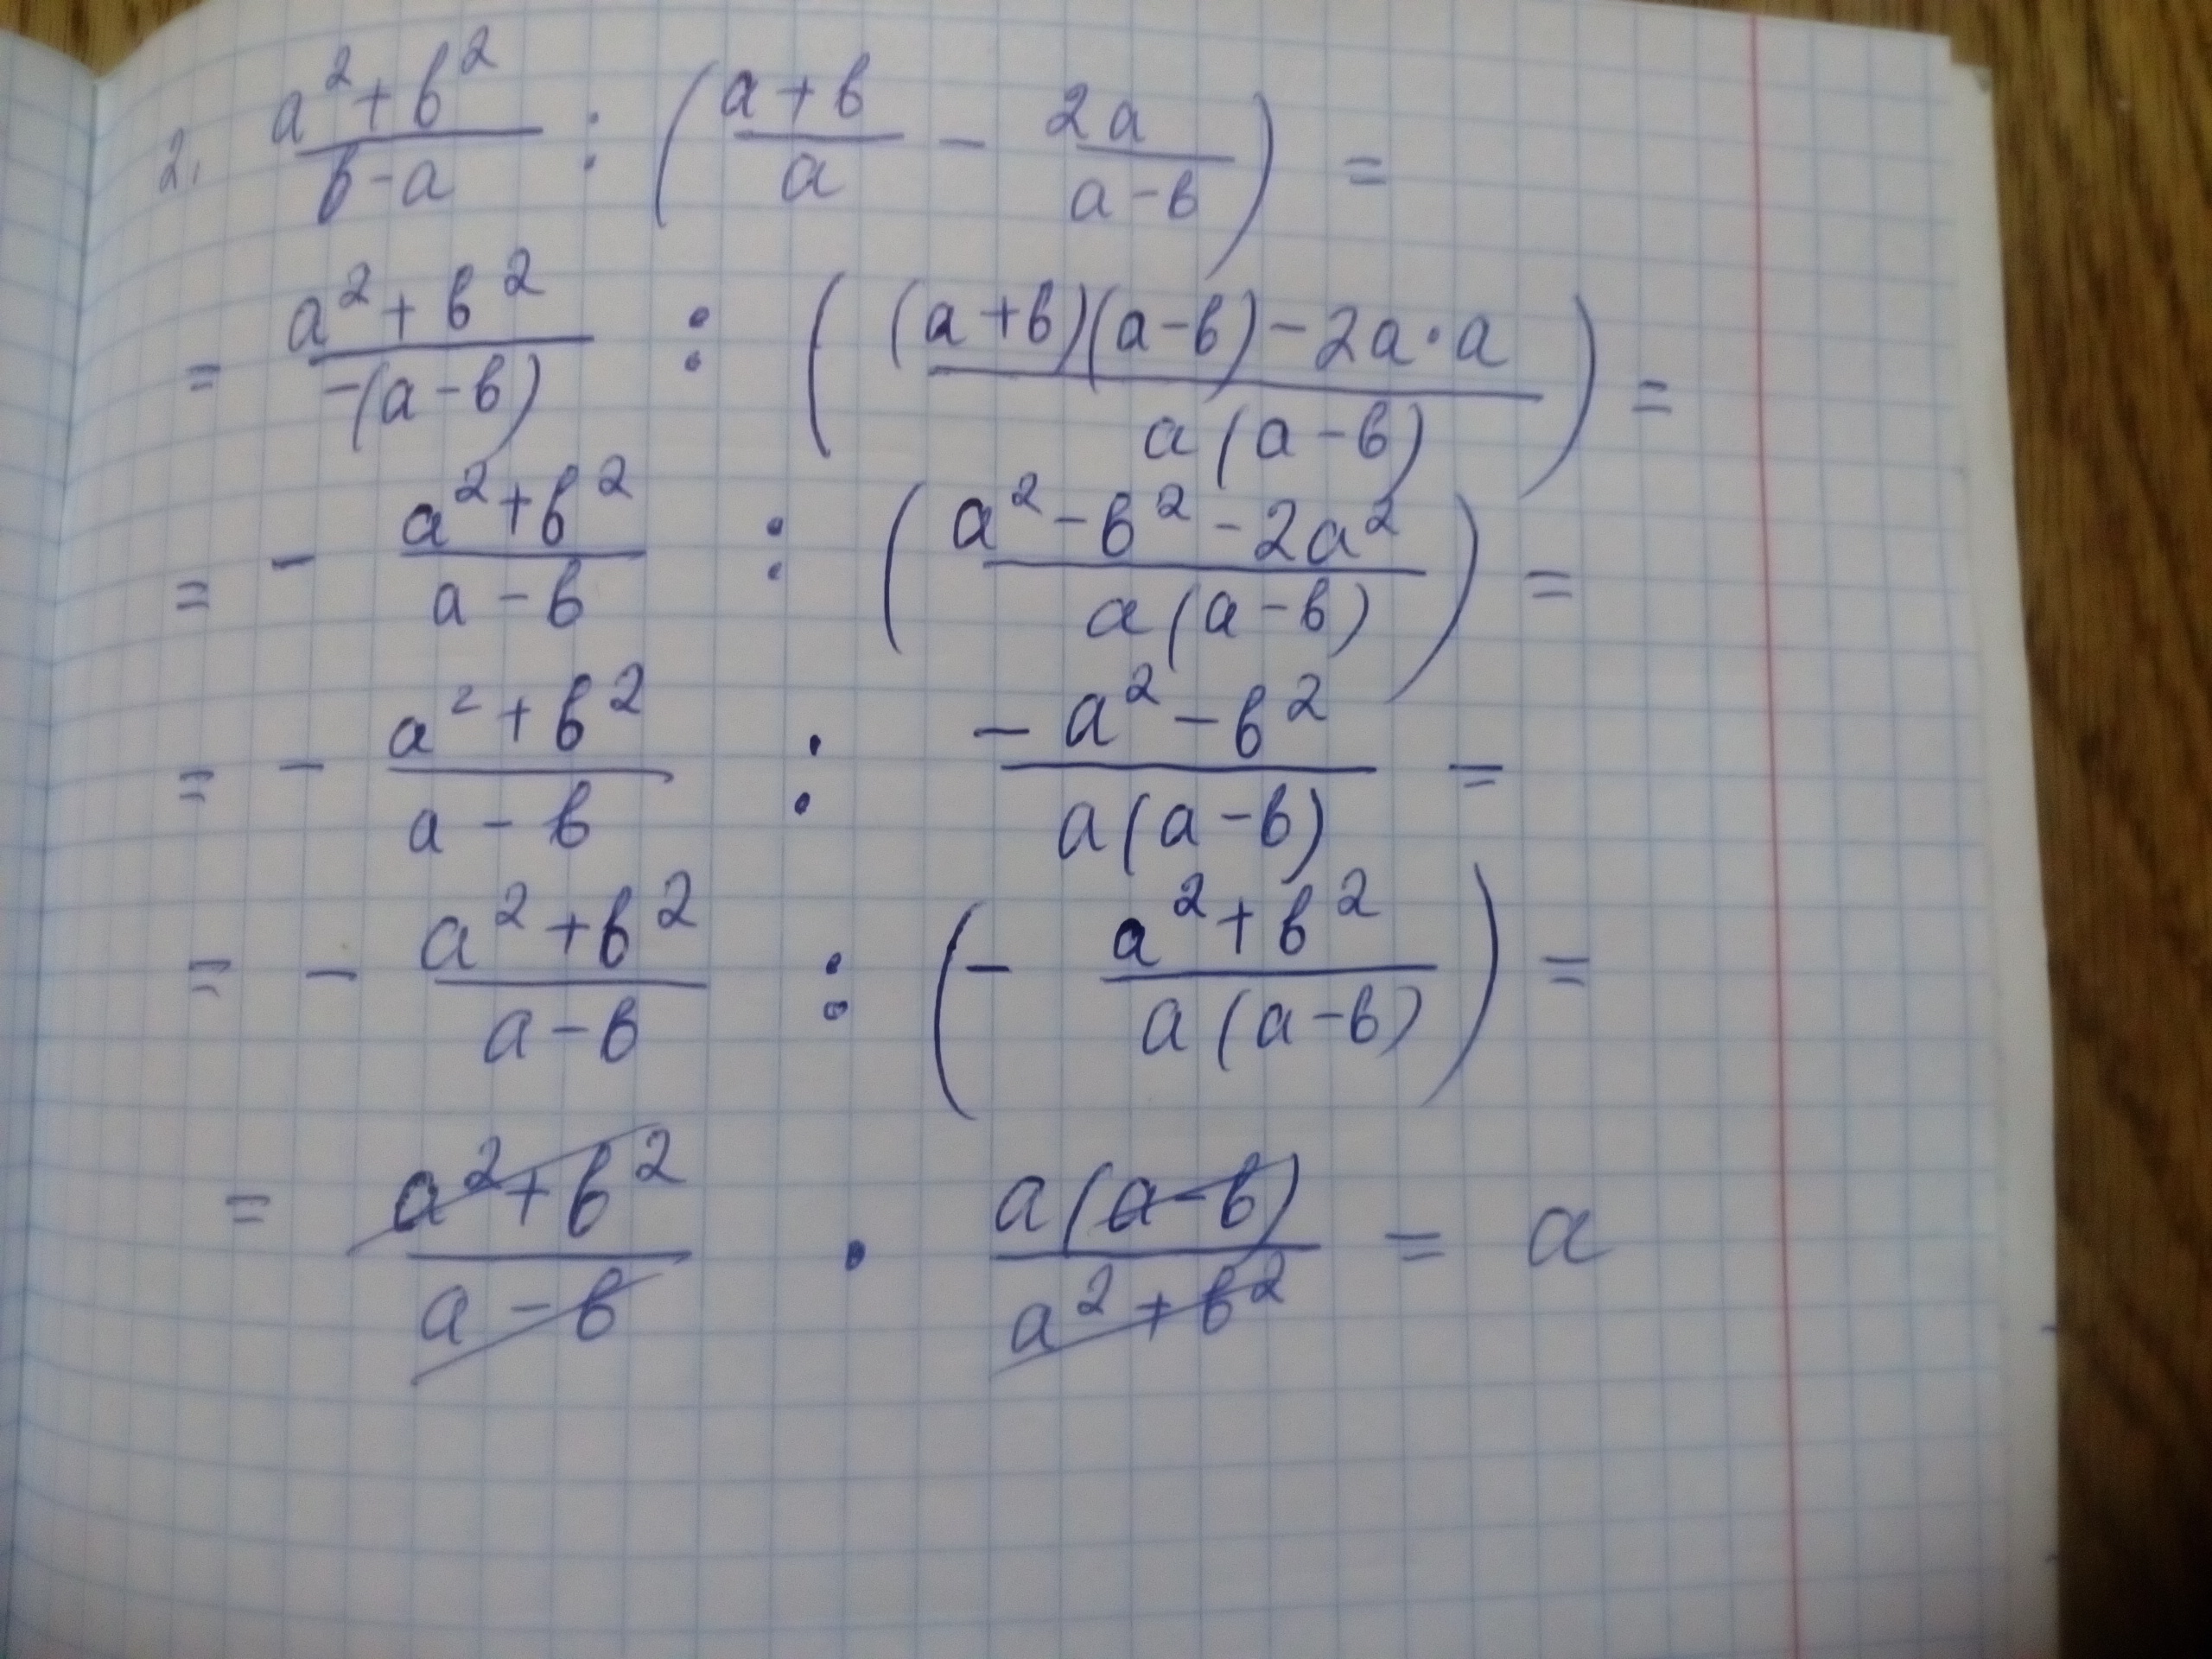 2. (a² + b²)/(b - a) : ((a + b)/a - 2a/(a - b)) =
= (a² + b²)/(-(a - b)) : (((a + b)(a - b) - 2a · a)/(a(a - b))) =
= - (a² + b²)/(a - b) : ((a² - b² - 2a²)/(a(a - b))) =
= - (a² + b²)/(a - b) : (- a² - b²)/(a(a - b)) =
= - (a² + b²)/(a - b) : (- (a² + b²)/(a(a - b))) =
= (a² + b²)/(a - b) · (a(a - b))/(a² + b²) = a